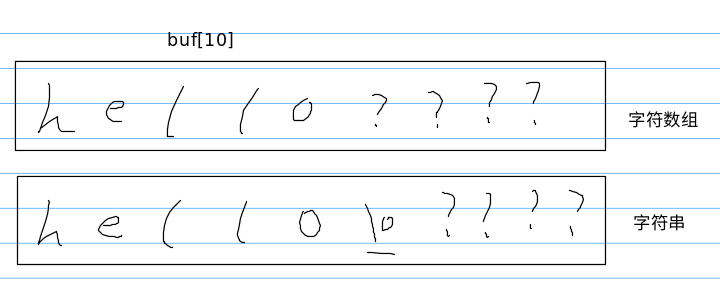 buf[10]
h e l l o ? ? ? ?
字符数组
h e l l o \0 ? ? ? ?
字符串